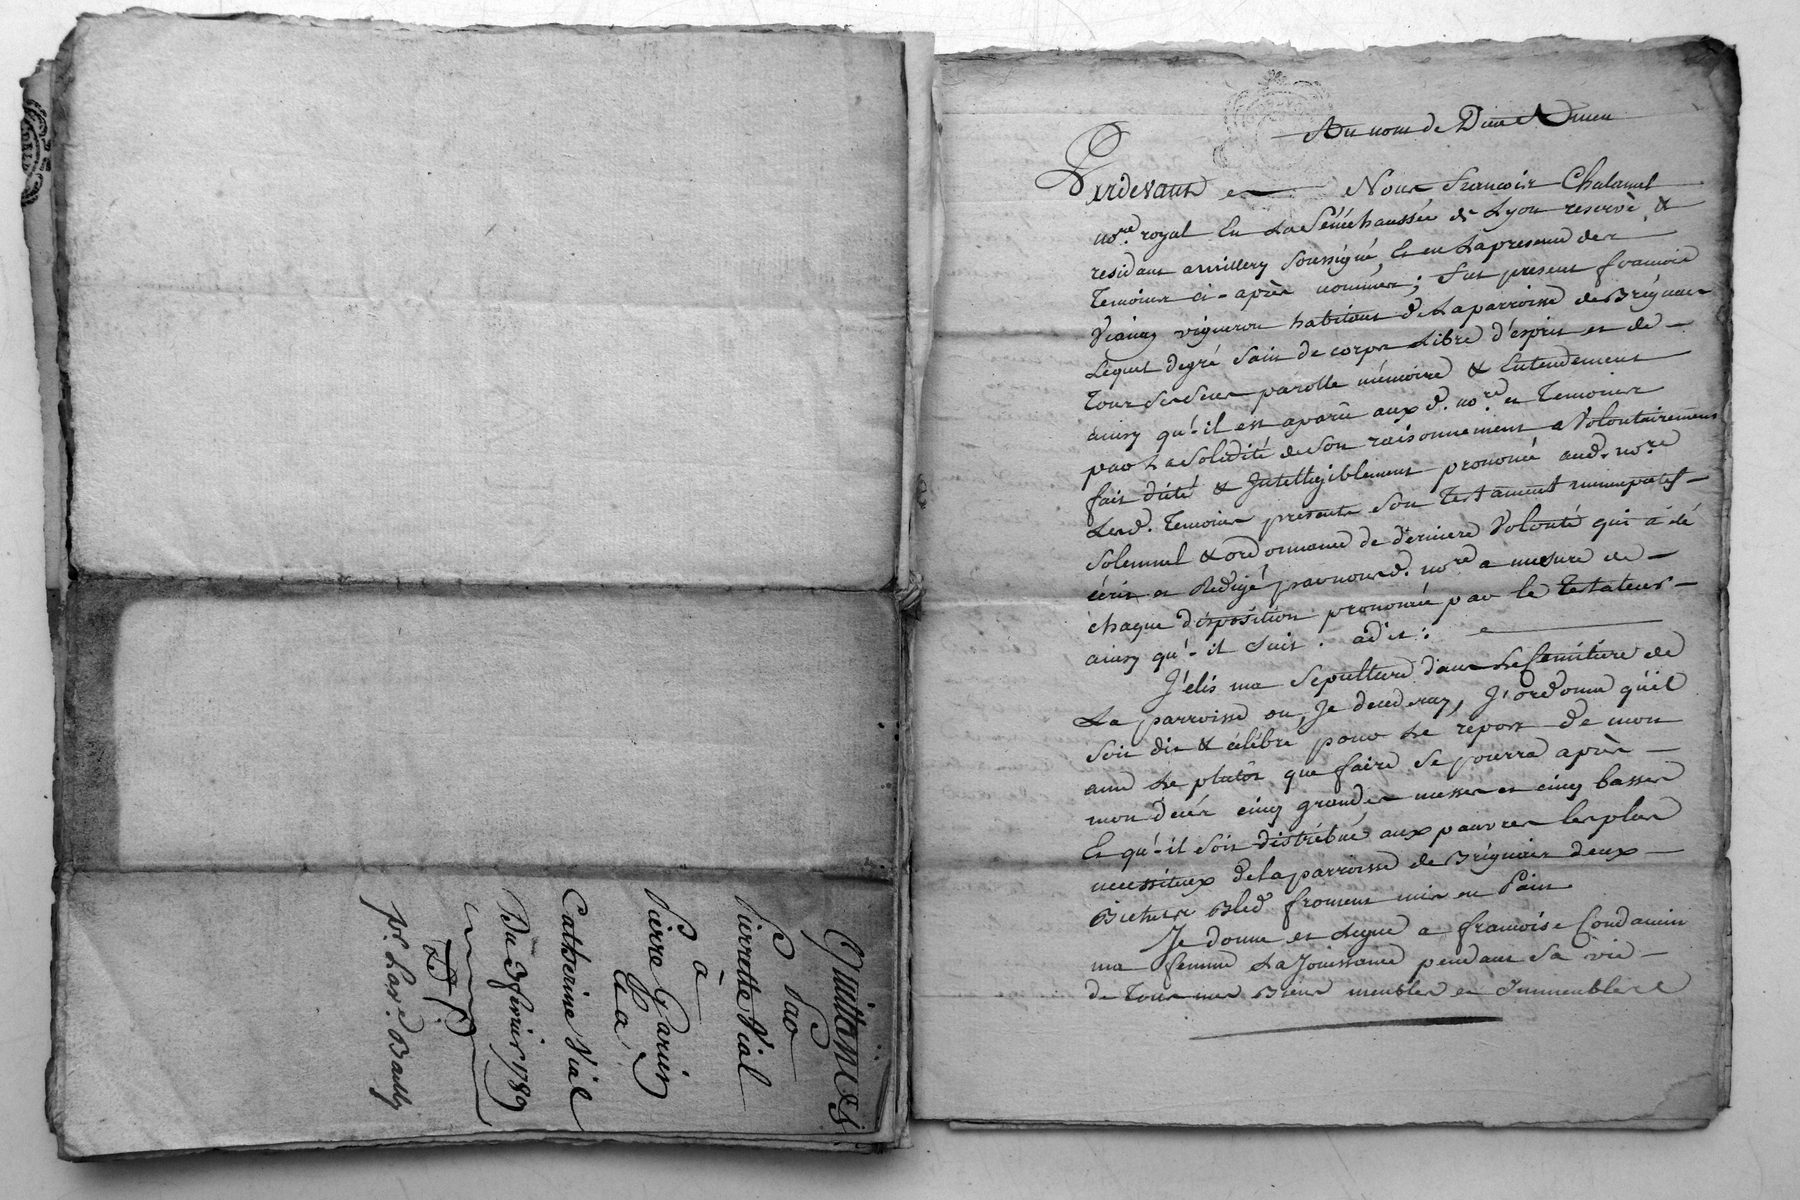 Quittances
par
Pierrette Vial
à
Pierre Garin
&a
Catherine Vial
Du 3 fevrier 1789
pr. Lard. Bailly
Au nom de Dieu Amen
Pardevant Nous francois Chalamel
nore. royal En La Sénéchaussée de Lyon reservé &
residant amillery Soussigné, Et en Lapresence des
Temoins ci-après nommés; fut present francois
vigneron habitant de Laparroisse de Brignais
Lequel degré Sain de corps Libre d'esprit et de
Tous Ses Sens parolle mémoire & Entendement
ainsy qu'-il est aparû aux d. nore. et Temoins
par La Solidité de Son raisonnement a Volontairement
fait dicté & Intelligiblement prononcé aud. nore.
Lesd. Temoins presents Son Testament nuncupatif
Solemnel & ordonnance de derniere Volonté qui a été
écrit et Redigé par nousd. nore a mesure de
chaque disposition prononcée par le Testateur
ainsy qu'-il Suit. adit:
J'élis ma Sepulture dans Le Cemitiere de
La parroisse ou Je decederay, J'ordonne qu'il
Soit dit & célébré pour Le repos de mon
ame Le plutôt que faire Se pourra après
mon decés cinq grandes messes et cinq basses
Et qu'-il Soit distribué aux pauvres les plus
necessiteux delaparroisse de Brignais deux
Bichets Bled froment mis en Pain
Je donne et Legue a francoise Condamin
ma femme La Jouissance pendant Sa vie
de Tous mes Biens meubles et Immeubles